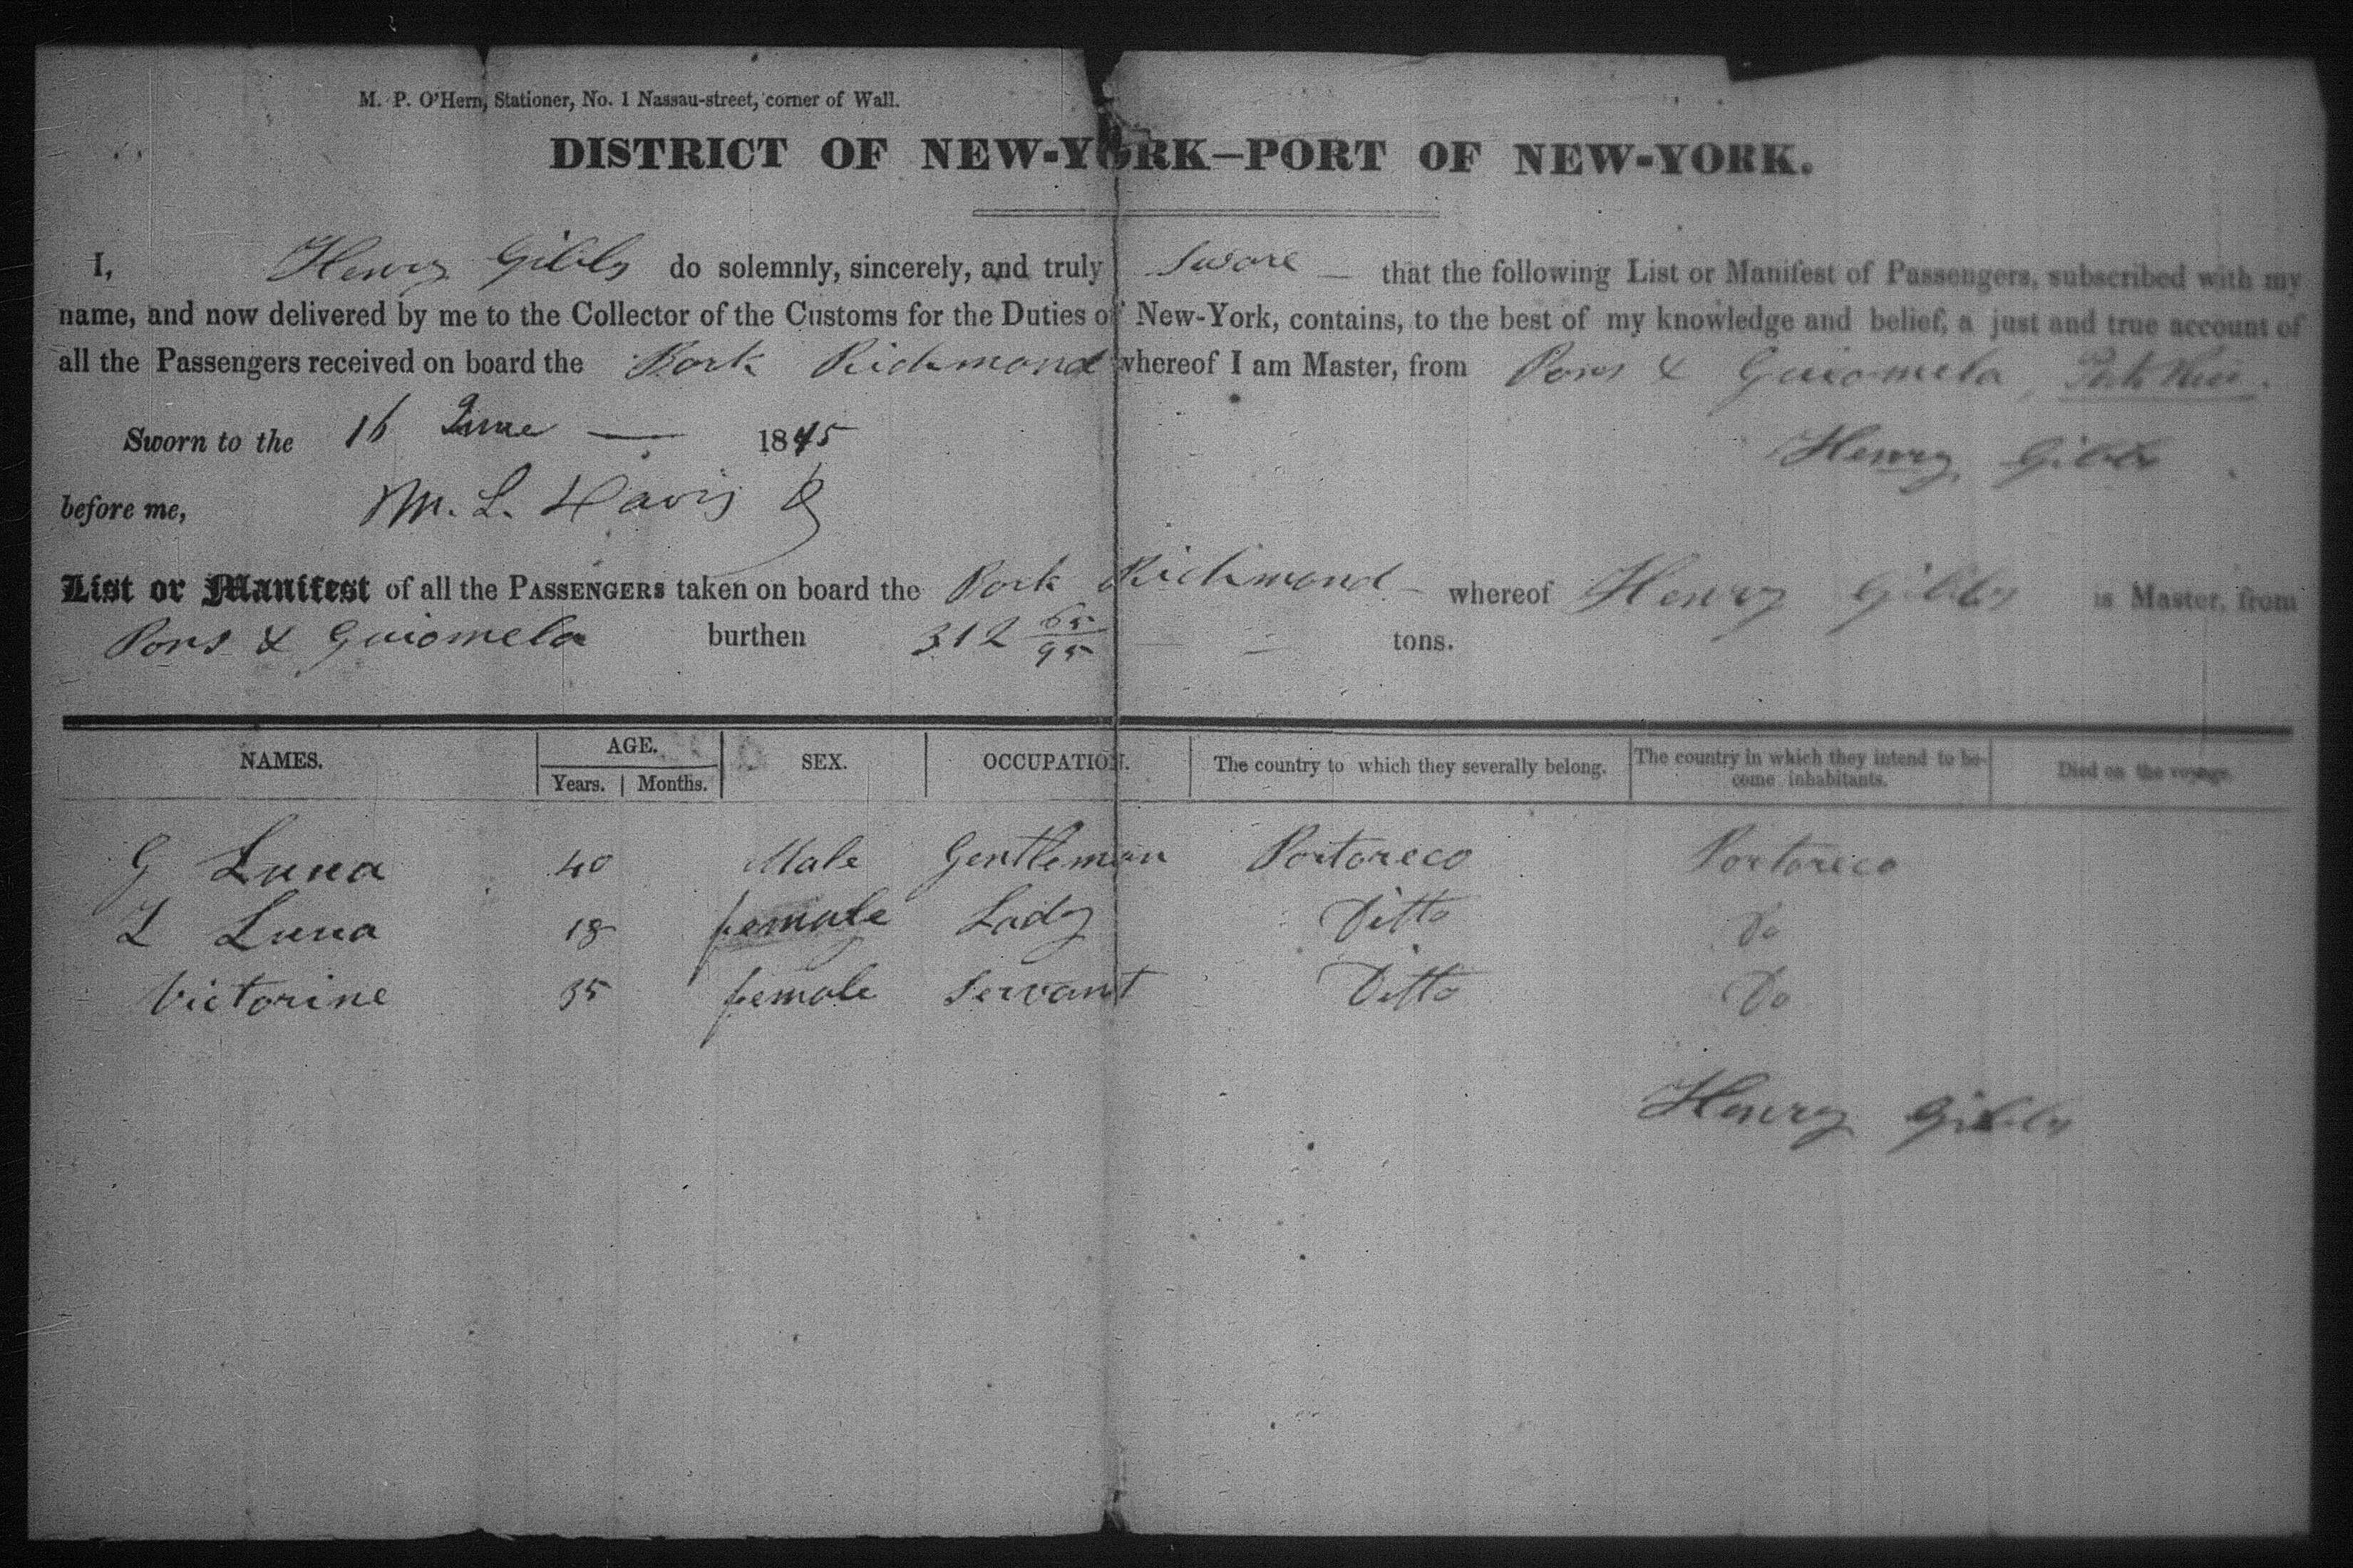 M. P. O'Hern, Stationer, No. 1 Nassau-street, corner of Wall.
DISTRICT OF NEW-YORK—PORT OF NEW-YORK.
I, Henry Gibbs do solemnly, sincerely, and truly Sware — that the following List or Manifest of Passengers, subscribed with my
name, and now delivered by me to the Collector of the Customs for the Duties of New-York, contains, to the best of my knowledge and belief, a just and true account of
all the Passengers received on board the Bark Richmond whereof I am Master, from Pons & Guiomela,
Sworn to the 16 June — 1845 Henry Gibbs
before me, M. L. Davis
List or Manifest of all the PASSENGERS taken on board the Bark Richmond — whereof Henry Gibbs is Master, from
Pons & Guiomela burthen 312 65/95 tons.
NAMES. AGE. Years. Months. SEX. OCCUPATION. The country to which they severally belong. The country in which they intend to become inhabitants. Died on the voyage.
G Luna 40 Male Gentleman Portoreco Portoreco
L Luna 18 female Lady Ditto Do
Victorine 35 female Servant Ditto Do
Henry Gibbs